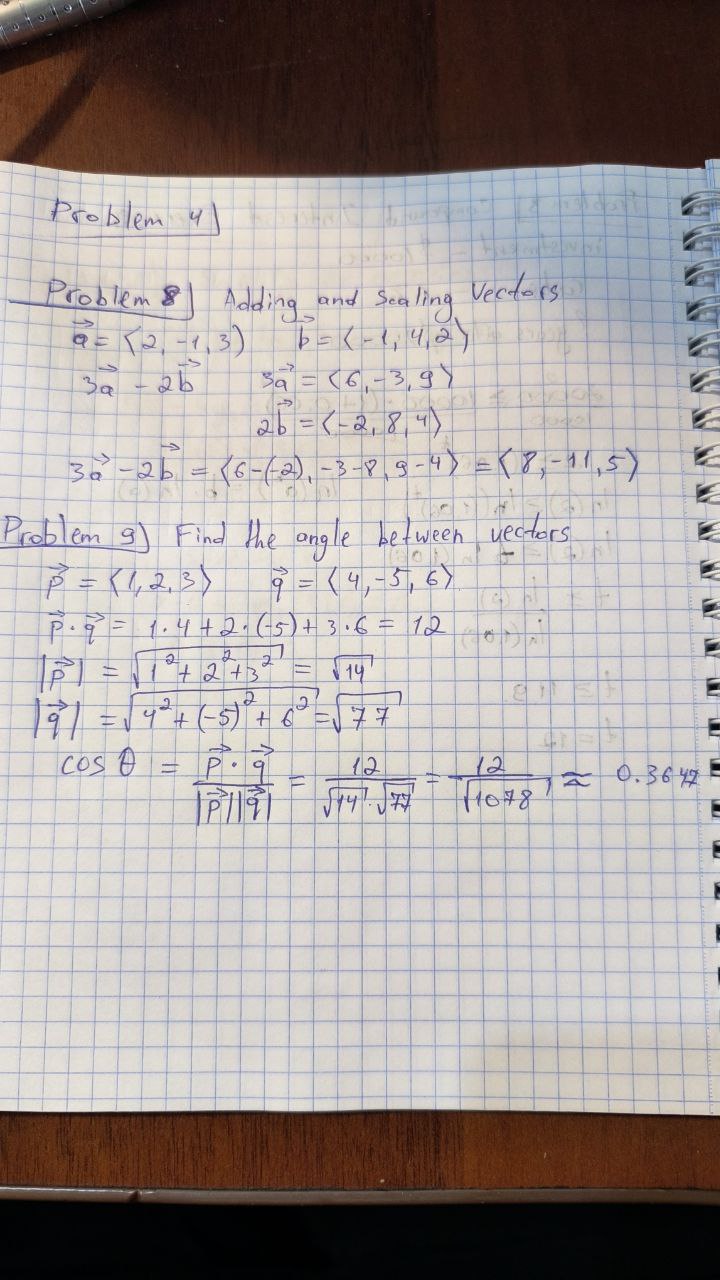 Problem 4)
Problem 8) Adding and Scaling Vectors
a⃗ = ⟨2, -1, 3⟩ b⃗ = ⟨-1, 4, 2⟩
3a⃗ - 2b⃗ 3a⃗ = ⟨6, -3, 9⟩
2b⃗ = ⟨-2, 8, 4⟩
3a⃗ - 2b⃗ = ⟨6-(-2), -3-8, 9-4⟩ = ⟨8, -11, 5⟩
Problem 9) Find the angle between vectors
p⃗ = ⟨1, 2, 3⟩ q⃗ = ⟨4, -5, 6⟩
p⃗ · q⃗ = 1·4 + 2·(-5) + 3·6 = 12
|p⃗| = √(1² + 2² + 3²) = √14
|q⃗| = √(4² + (-5)² + 6²) = √77
cos θ = (p⃗ · q⃗)/(|p⃗||q⃗|) = 12/(√14 · √77) = 12/√1078 ≈ 0.3647